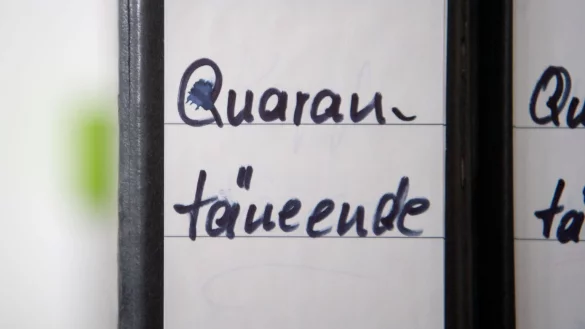 Quaran-
täneende
Qu
tä